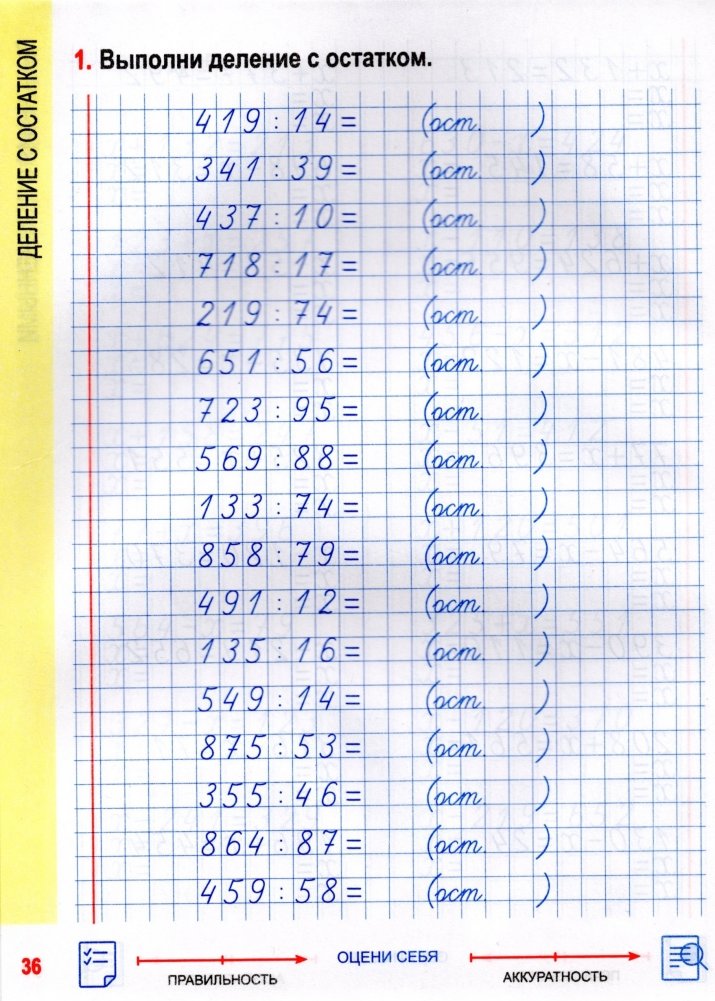 ДЕЛЕНИЕ С ОСТАТКОМ
1. Выполни деление с остатком.
419 : 14 = (ост. )
341 : 39 = (ост. )
437 : 10 = (ост. )
718 : 17 = (ост. )
219 : 74 = (ост. )
651 : 56 = (ост. )
723 : 95 = (ост. )
569 : 88 = (ост. )
133 : 74 = (ост. )
858 : 79 = (ост. )
491 : 12 = (ост. )
135 : 16 = (ост. )
549 : 14 = (ост. )
875 : 53 = (ост. )
355 : 46 = (ост. )
864 : 87 = (ост. )
459 : 58 = (ост. )
36 ПРАВИЛЬНОСТЬ ОЦЕНИ СЕБЯ АККУРАТНОСТЬ